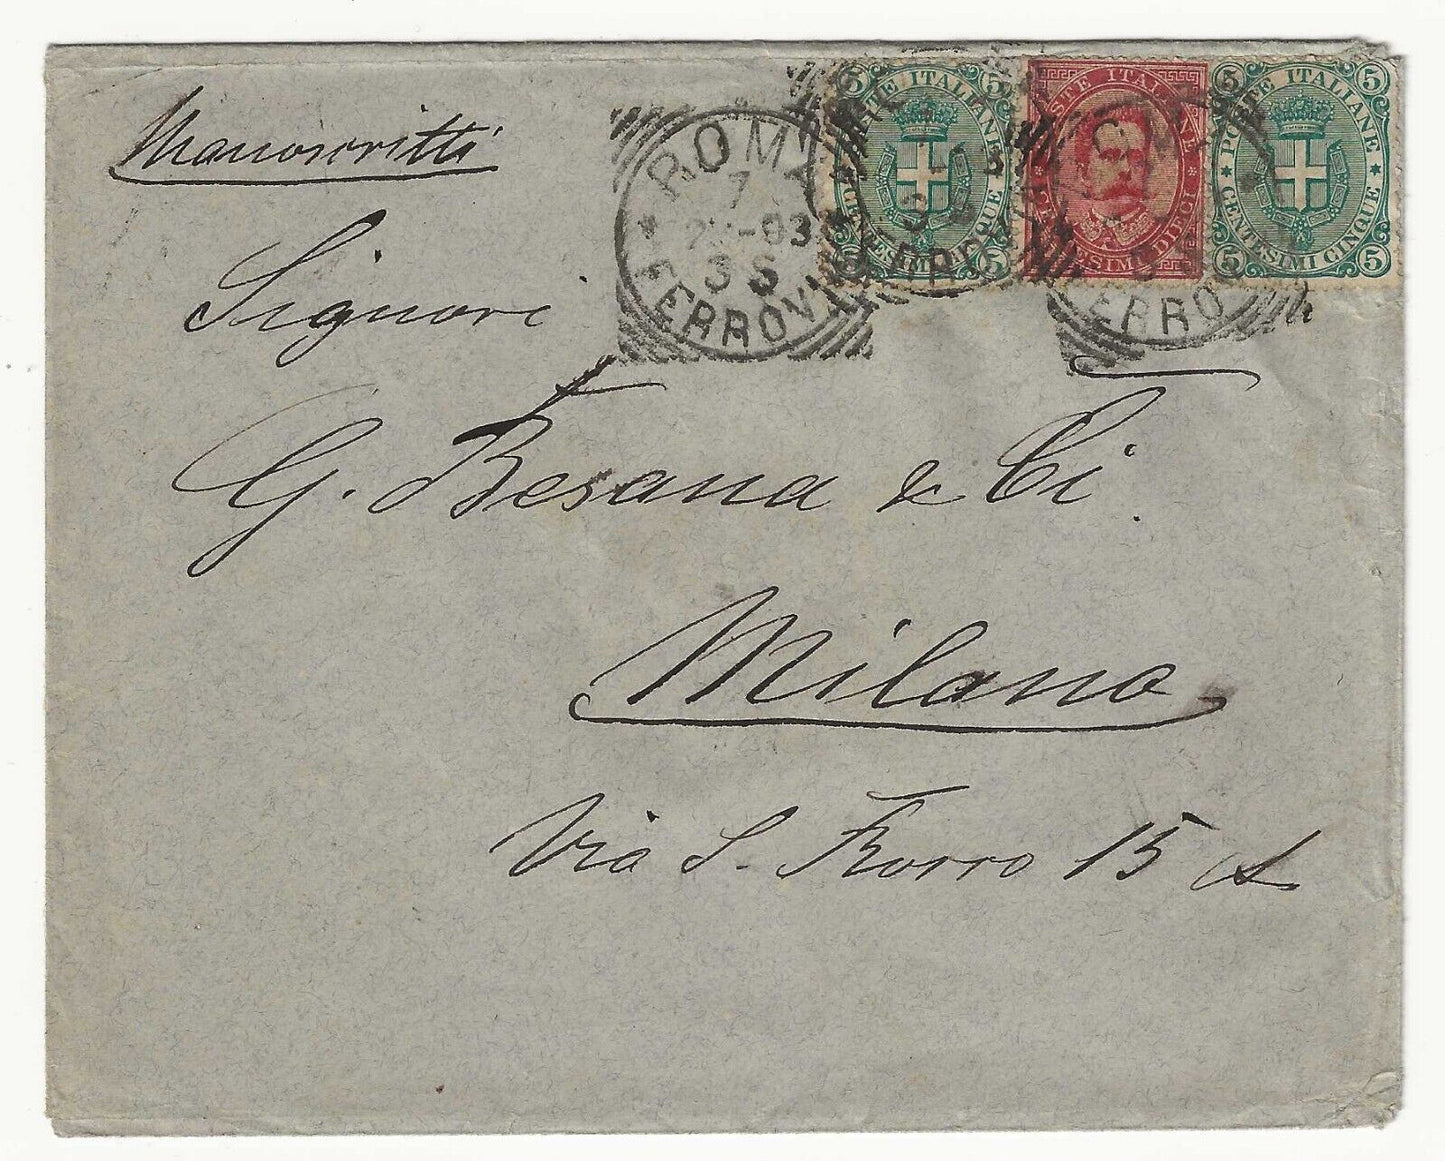 Manoscritti
ROMA
7
93
3 S
FERROVIA
5 POSTE ITALIANE 5
5 CENTESIMI CINQUE 5
POSTE ITALIANE
CENTESIMI DIECI
5 POSTE ITALIANE 5
5 CENTESIMI CINQUE 5
Signori
G. Besana & Ci
Milano
Via S. 15 A